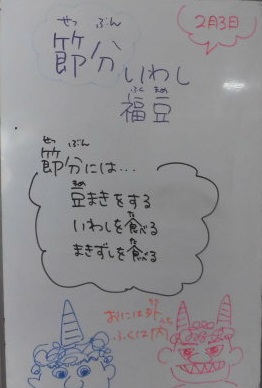 2月3日
せつ ぶん
節分
いわし
ふく まめ
福豆
せつ ぶん
節分には…
まめ
豆まきをする
た
いわしを食べる
た
まきずしを食べる
そと
おには外
うち
ふくは内